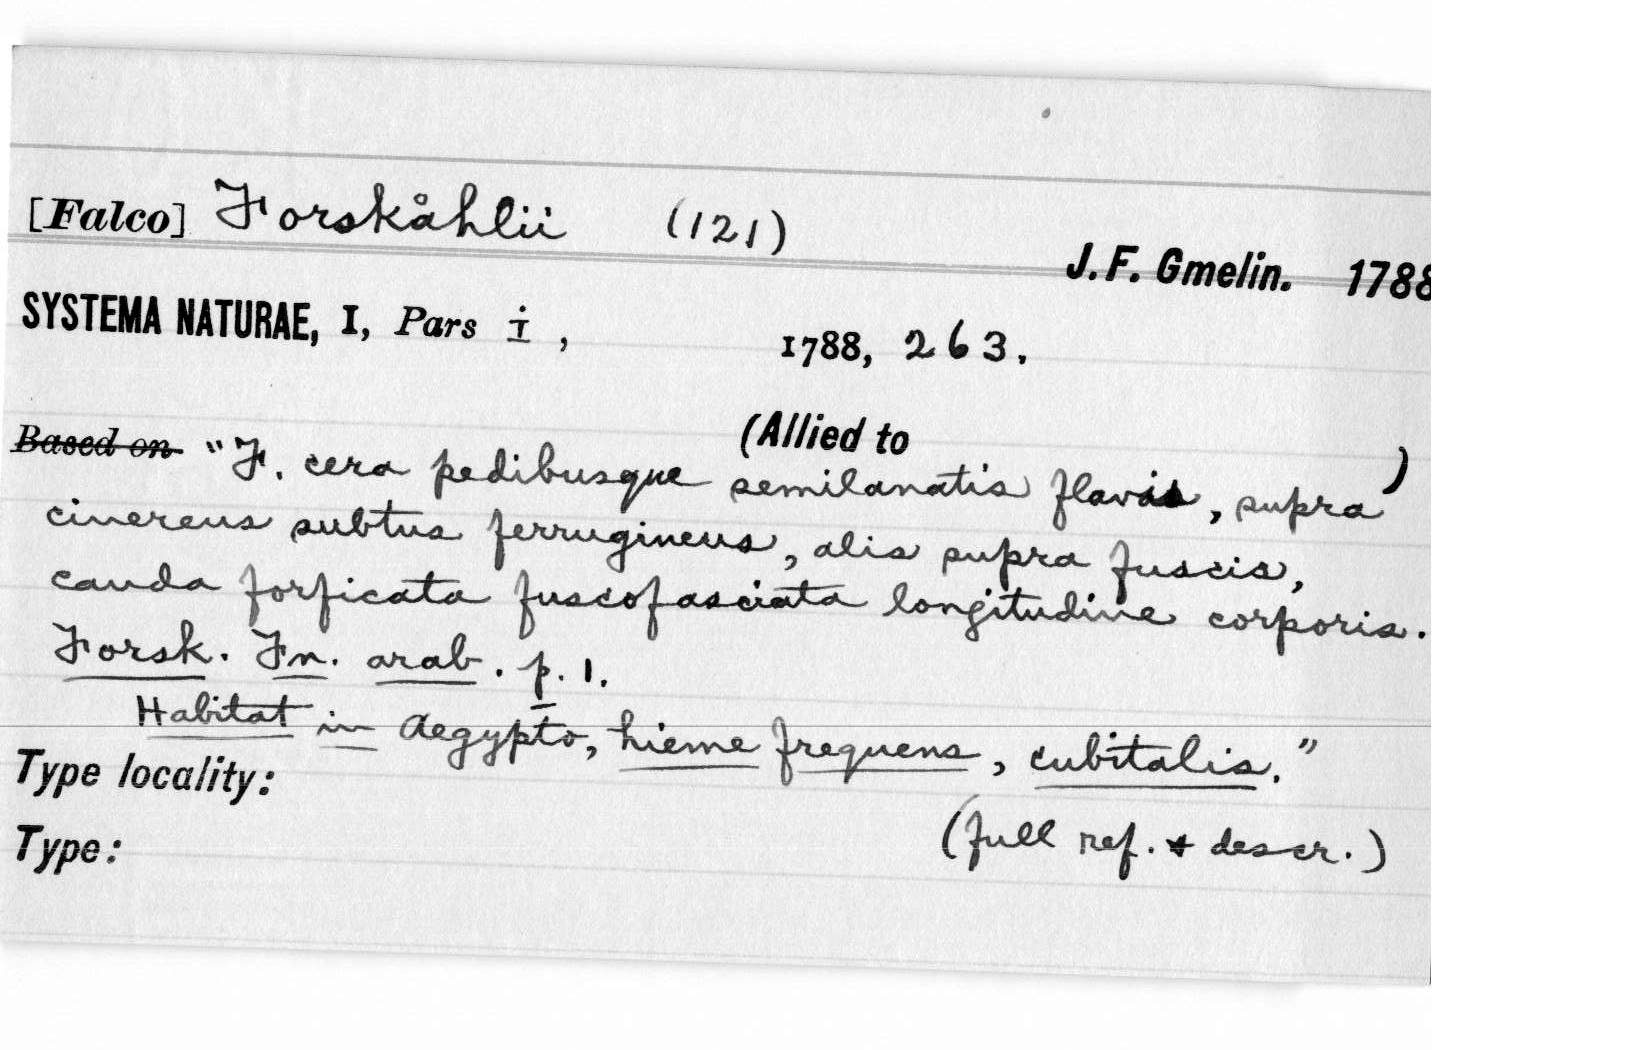 [Falco] Forskåhlii (121)
J. F. Gmelin. 1788
SYSTEMA NATURAE, I, Pars i, 1788, 263.
(Allied to )
Based on "F. cera pedibusque semilanatis flavis, supra
cinereus subtus ferrugineus, alis supra fuscis,
cauda forficata fuscofasciata longitudine corporis.
Forsk. Fn. arab. p. 1.
Habitat in Aegypto, hieme frequens, cubitalis."
Type locality:
(full ref. & descr.)
Type: